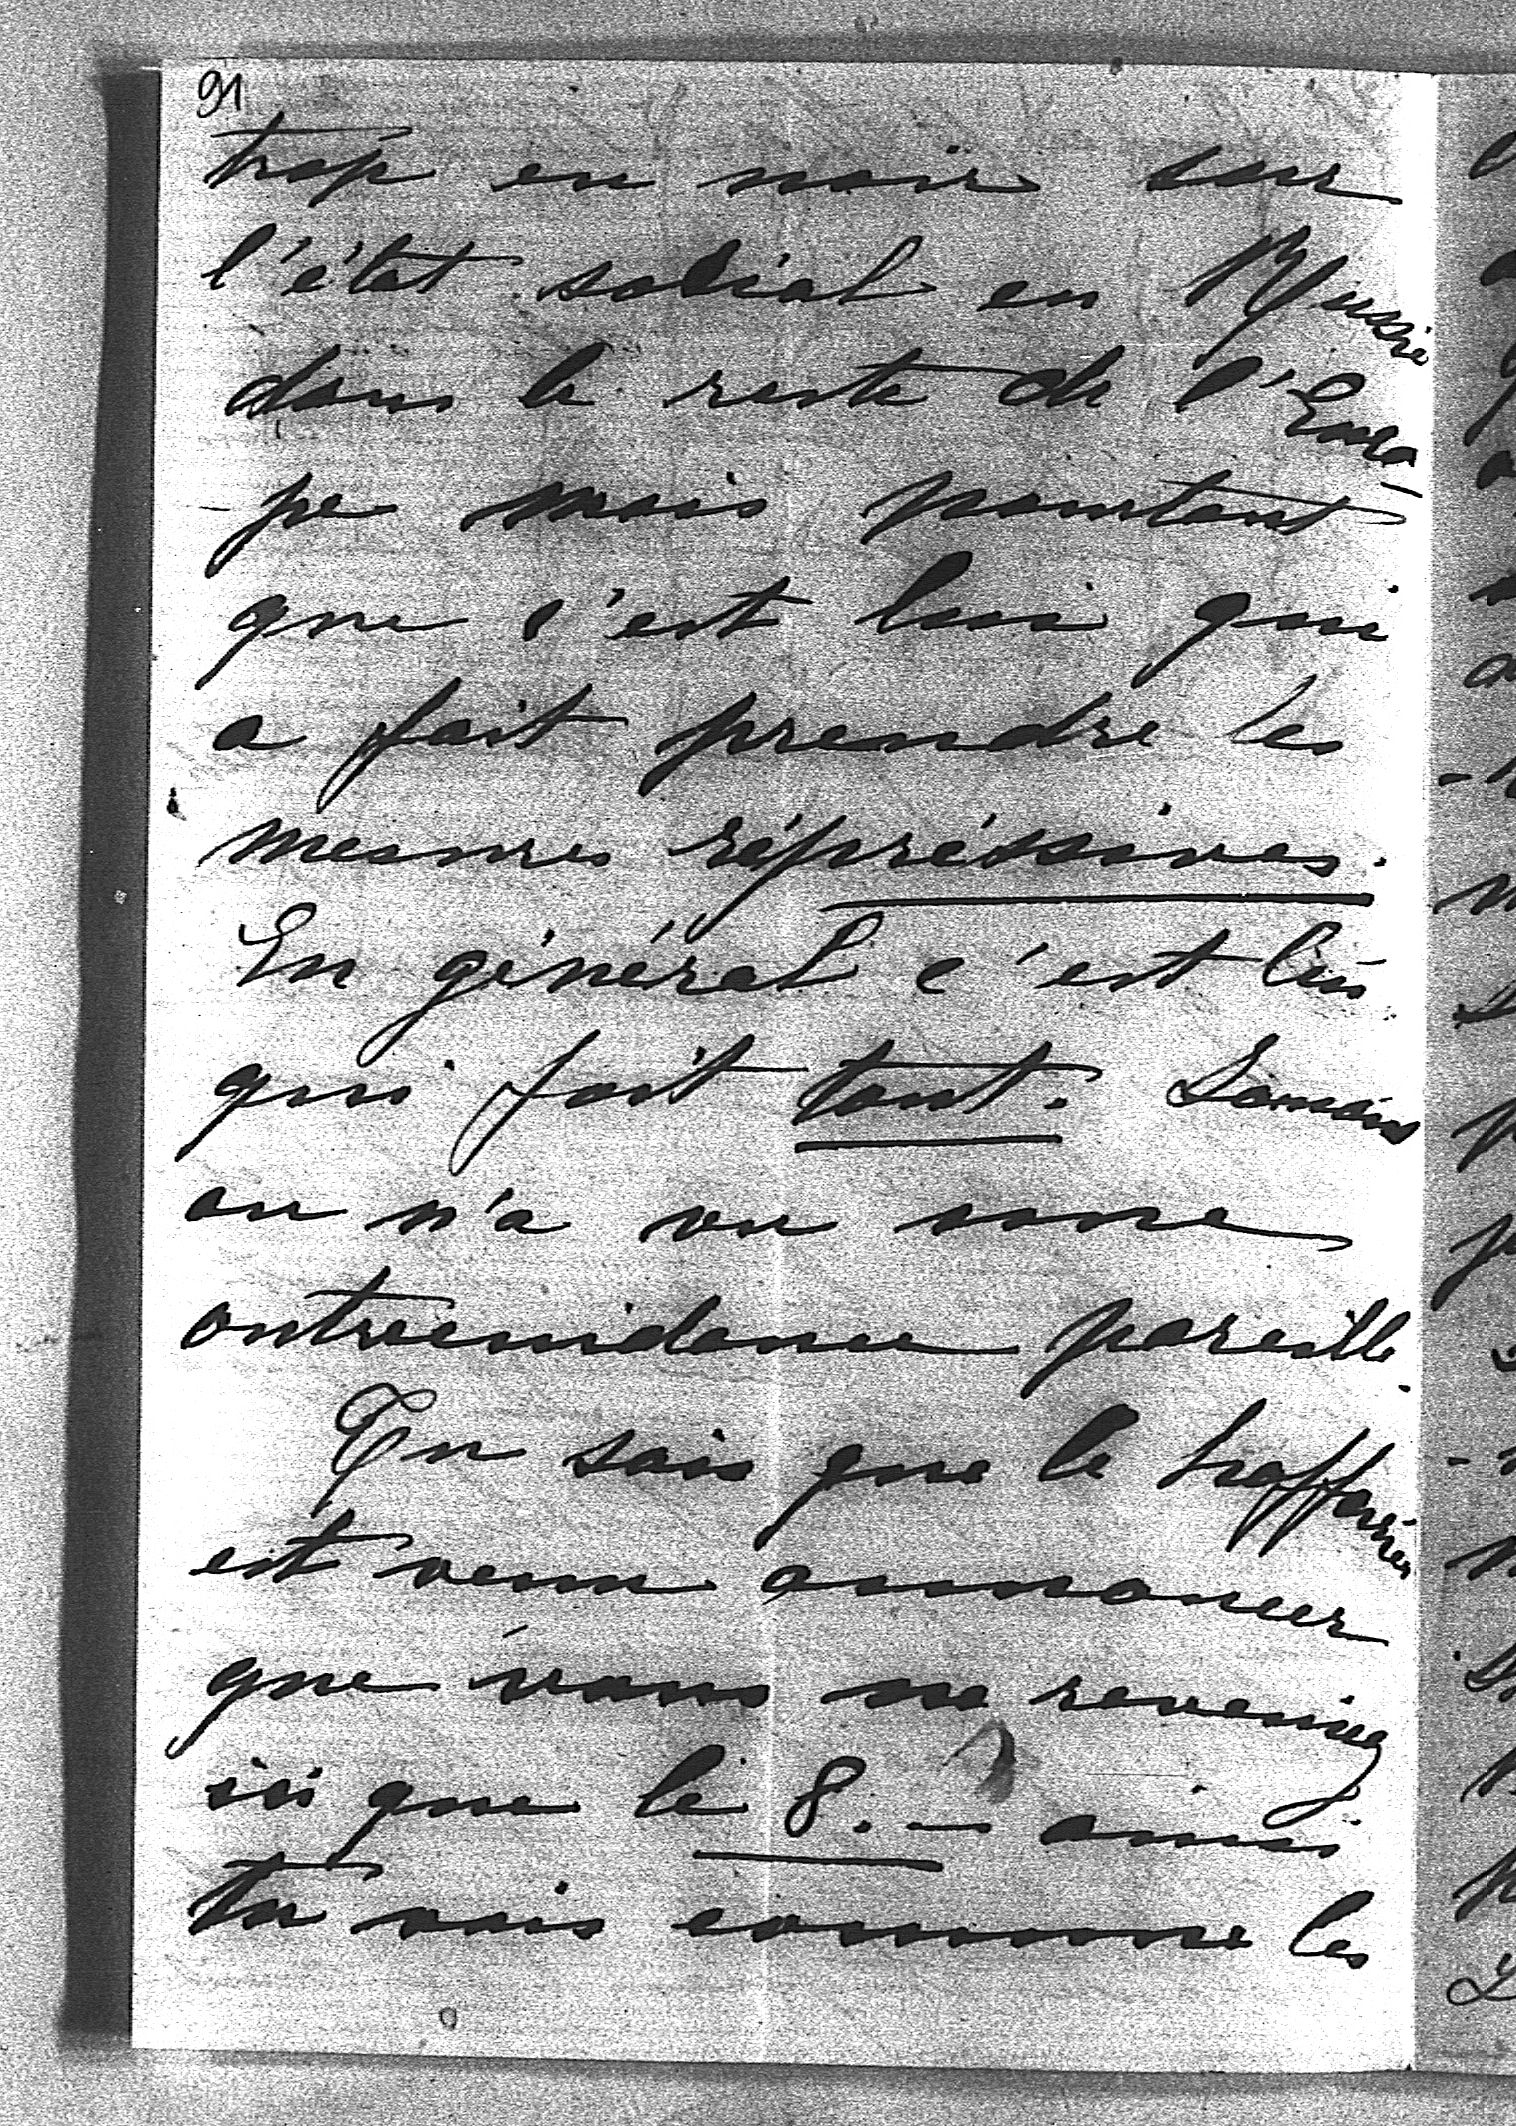 91
trop en noir sur
l'état social en Russie
dans le reste de l'Euro-
pe mais pourtant
que c'est lui qui
a fait prendre les
mesures répréssives.
En général c'est lui
qui fait tout. Jamais
on n'a vu une
outrecuidance pareille.
Tu sais que le
est venu annoncer
que vous ne reveniez
ici que le 8. — ainsi
tu vois comme les